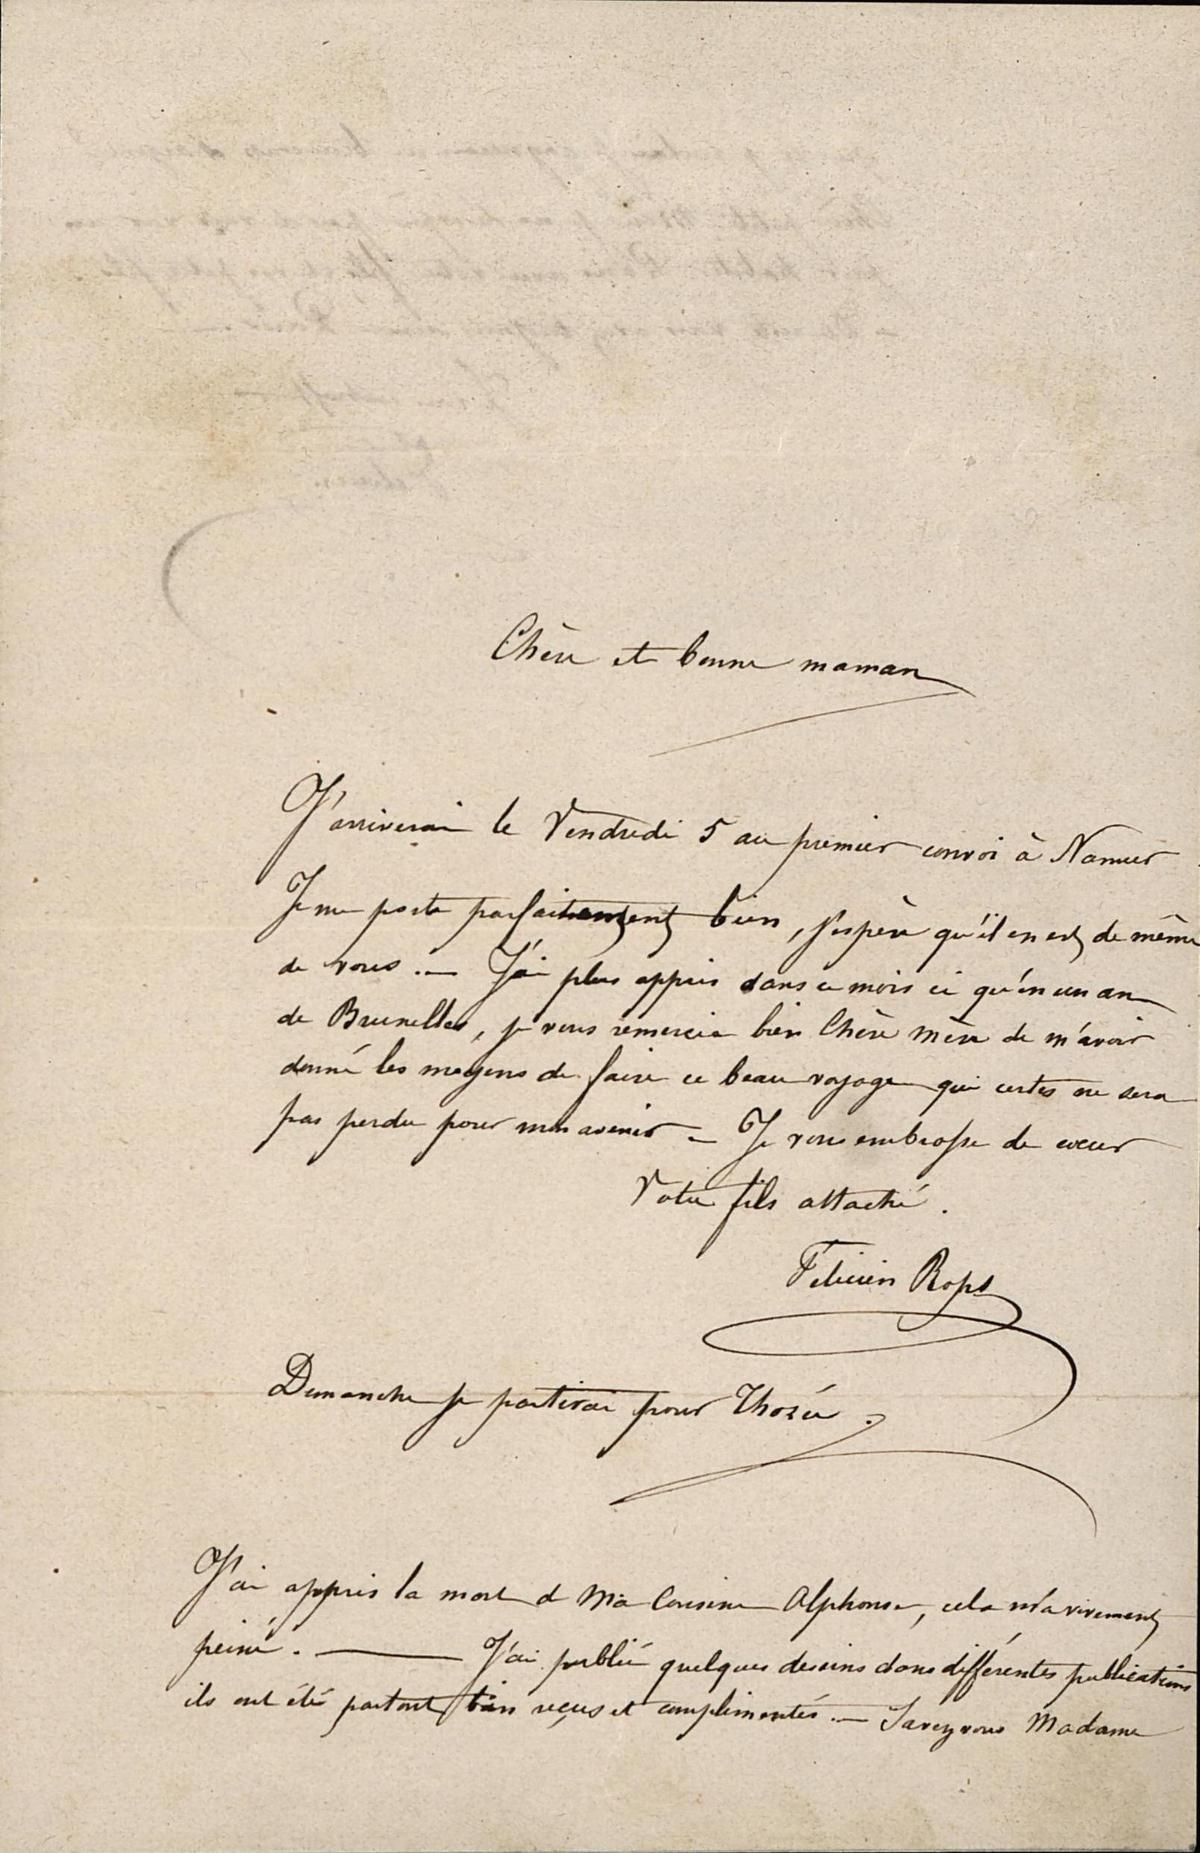 Chère et bonne maman
J'arriverai le Vendredi 5 au premier convoi à Namur
Je me porte parfaitement bien, j'espère qu'il en est de même
de vous. — J'ai plus appris dans ce mois ci qu'en un an
de Bruxelles, je vous remercie bien Chère Mère de m'avoir
donné les moyens de faire ce beau voyage qui certes ne sera
pas perdu pour mon avenir — Je vous embrasse de coeur
Votre fils attaché.
Félicien Rops
Dimanche je partirai pour Thozée.
J'ai appris la mort d Ma Cousine Alphonse, cela m'a vivement
peiné. — J'ai publié quelques dessins dans différentes publications
ils ont étés partout bien reçus et complimentés. — Savez vous Madame